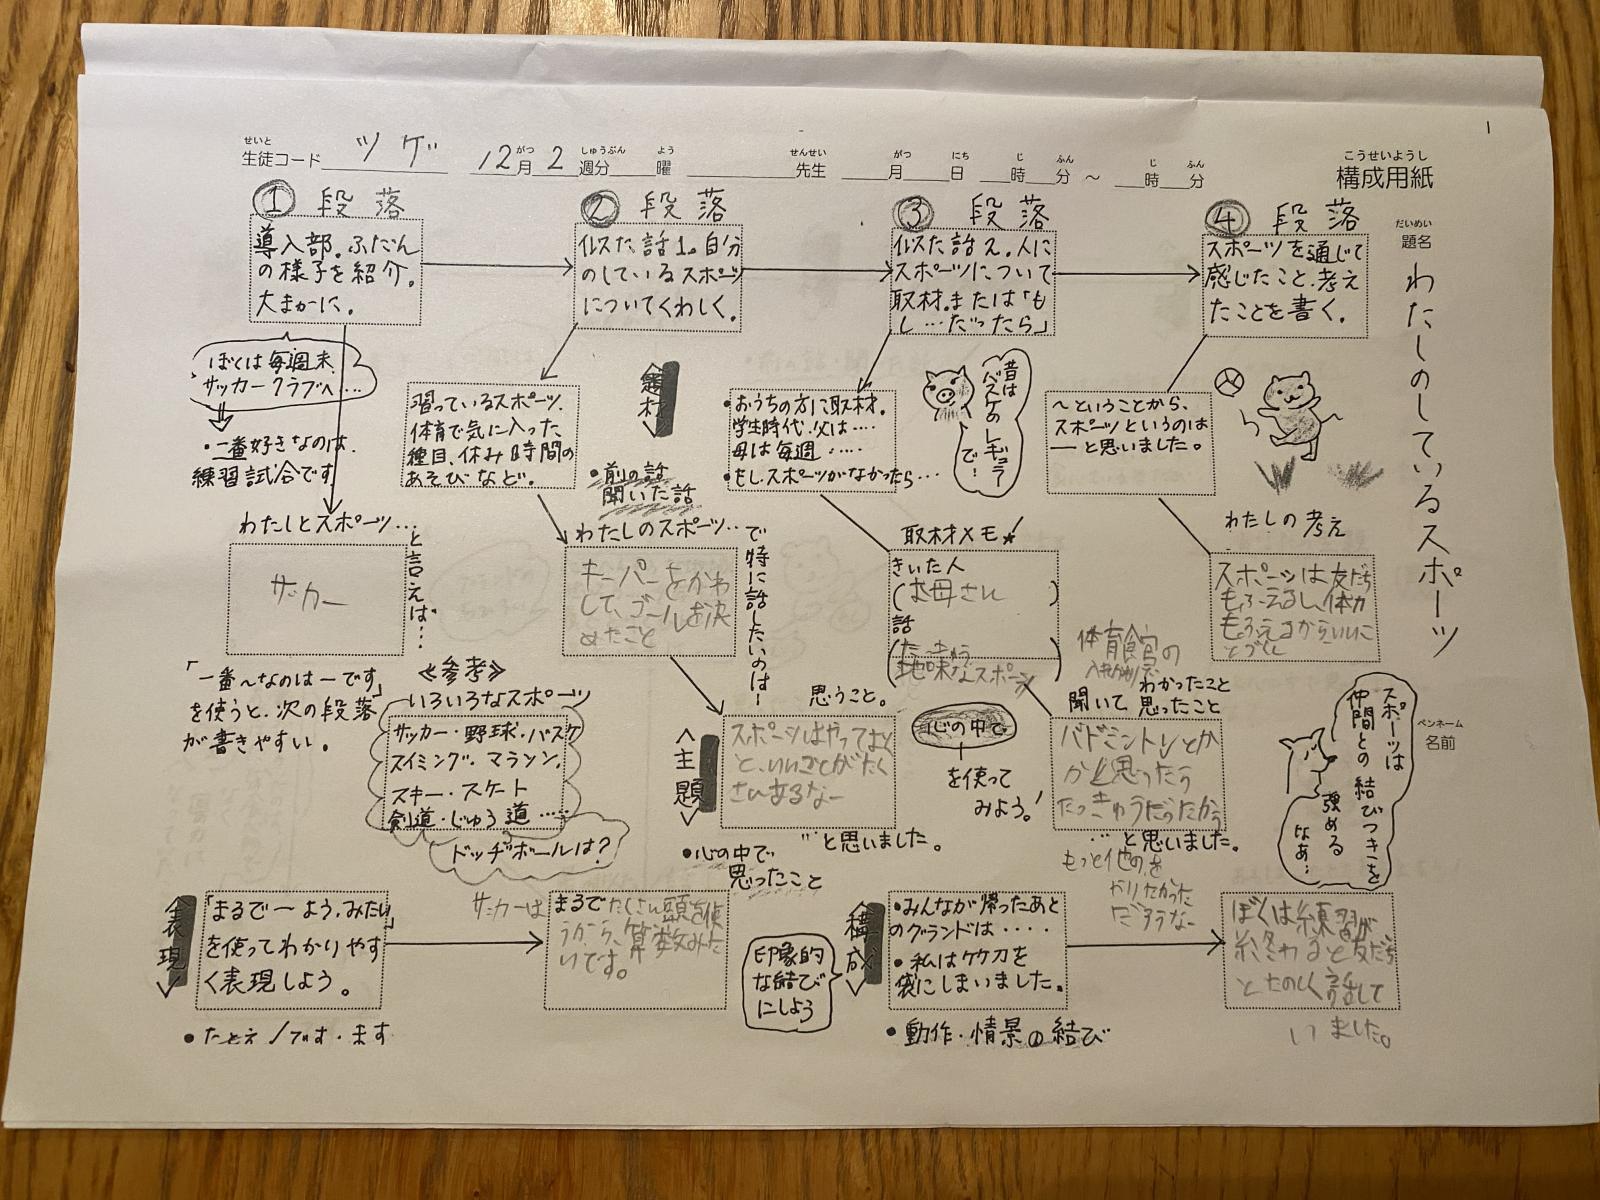 せいと
生徒コード ツゲ
12月2週分 曜
がつ しゅうぶん よう
先生
せんせい
月 日 時 分 ～ 時 分
がつ にち じ ふん じ ふん
こうせいようし
構成用紙
1
だいめい
題名
わたしのしているスポーツ
ペンネーム
名前
① 段落
導入部。ふだん
の様子を紹介。
大まかに。
ぼくは毎週末、
サッカークラブへ…
・一番好きなのは、
練習試合です
わたしとスポーツ…
と言えば…
サッカー
「一番～なのは―です」
を使うと、次の段落
が書きやすい。
② 段落
似た話1。自分
のしているスポーツ
についてくわしく。
習っているスポーツ、
体育で気に入った
種目、休み時間の
あそびなど。
題材
・前の話
聞いた話
わたしのスポーツ…
で特に話したいのは―
キーパーをかわ
して、ゴールを決
めたこと
《参考》
いろいろなスポーツ
サッカー・野球・バスケ
スイミング、マラソン、
スキー・スケート
剣道・じゅう道……
ドッヂボールは？
〈主題〉
思うこと。
スポーツはやっておく
と、いいことがたく
さんあるなー
…と思いました。
・心の中で
思ったこと
③ 段落
似た話2。人に
スポーツについて
取材。または「も
し…だったら」
・おうちの方に取材。
学生時代、父は‥‥
母は毎週……
・もしスポーツがなかったら…
昔は
バスケの
レギュラー
で…
取材メモ
きいた人
（お母さん）
話
（たっきゅう
地味なスポーツ）
体育館の
聞いて わかったこと
思ったこと
心の中で
を使って
みよう！
バドミントンとか
かと思ったら
たっきゅうだったから
…と思いました。
もっと他のを
やりたかった
だろうなー
④ 段落
スポーツを通じて
感じたこと、考え
たことを書く。
～ということから、
スポーツというのは
―と思いました。
わたしの考え
スポーツは友だち
もふえるし、体力
もふえるからいいこ
とづくし
スポーツは
仲間との結びつきを
強める
なぁ…
〈表現〉
「まるで―よう。みたい」
を使ってわかりやす
く表現しよう。
・たとえ／です・ます
サッカーは
まるでたくさん頭を使
うから、算数みた
いです。
印象的
な結び
にしよう
〈構成〉
・みんなが帰ったあと
のグランドは‥‥
・私はケケ刀を
袋にしまいました。
・動作・情景の結び
ぼくは練習が
終わると友だち
とたのしく話して
いました。